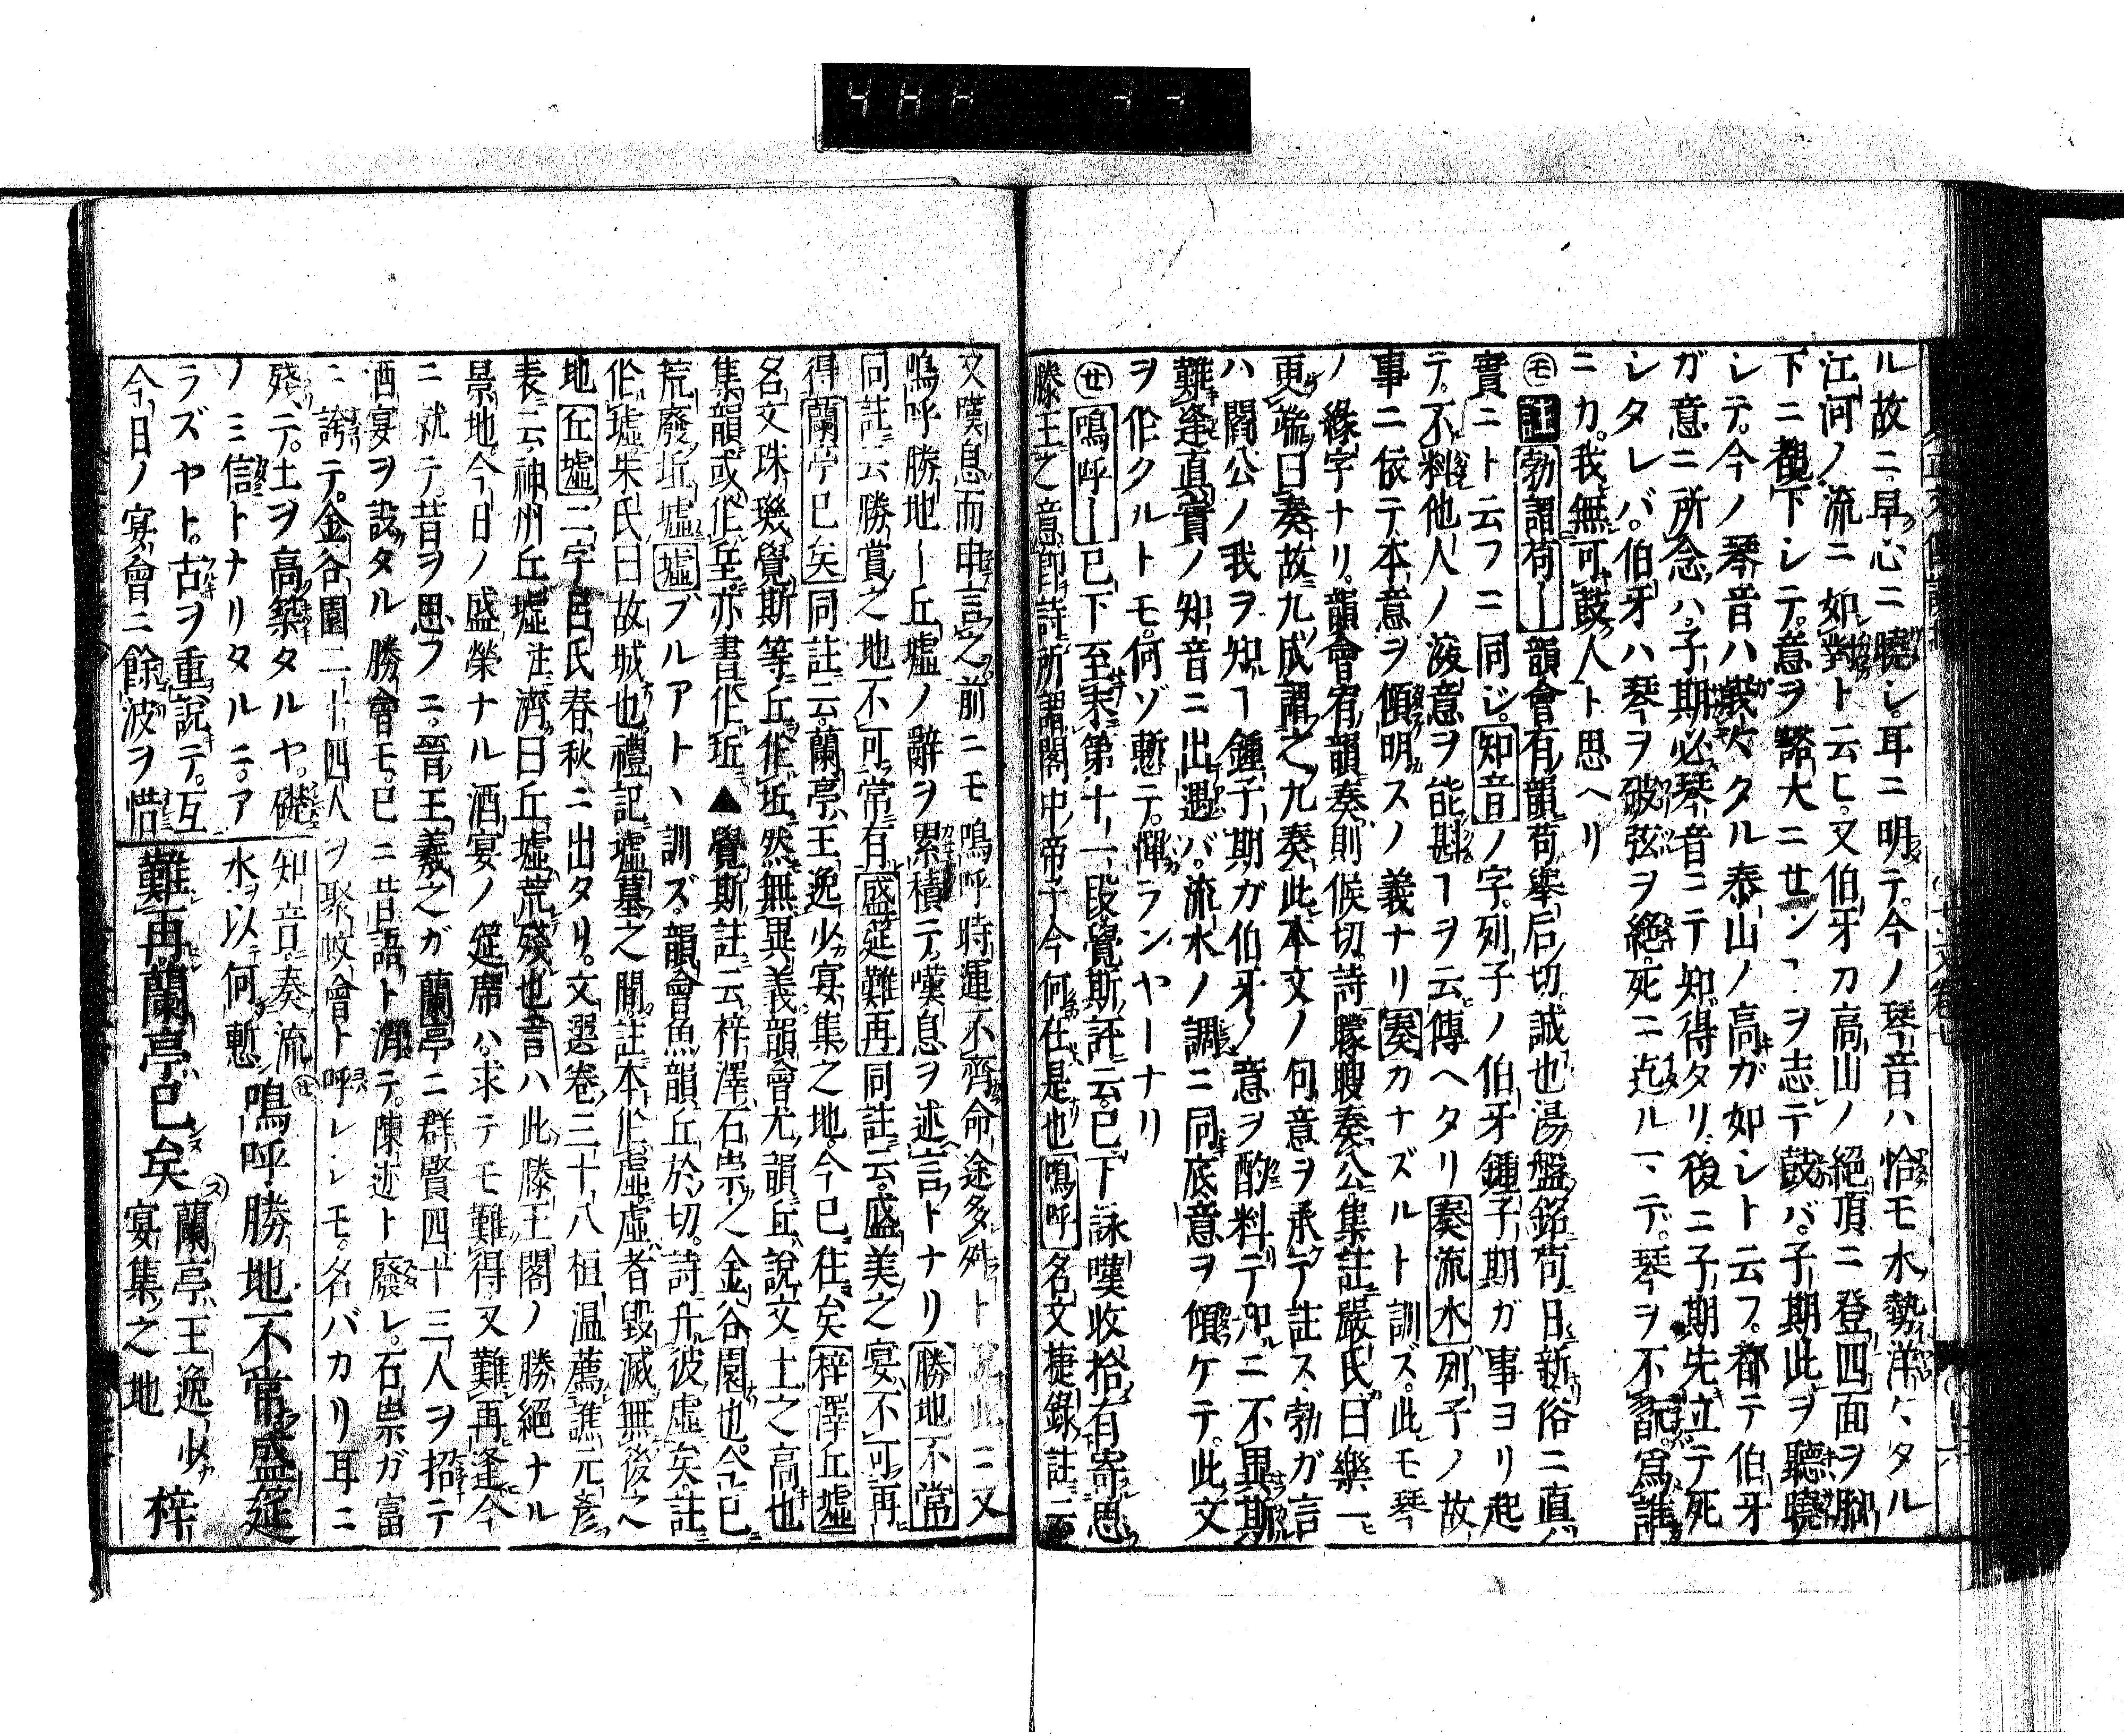 ル故ニ早心ニ曉シ耳ニ明テ今ノ琴音ハ恰モ水勢洋々タル
江河ノ流ニ如對ト云ヒ又伯牙刀高山ノ絕頂ニ登四面ヲ脚
下ニ觀下シテ意ヲ豁大ニセンヿヲ志テ鼓バ子期此ヲ聽曉
シテ今ノ琴音ハ峩々タル泰山ノ高ガ如シト云フ都テ伯牙
ガ意ニ所念ハ子期必琴音ニテ知得タリ後ニ子期先立テ死
シタレバ伯牙ハ琴ヲ破弦ヲ絕死ニ迄ルヽテ琴ヲ不
ニカ我無可鼓人ト思ヘリ
㊁註勃謂苟—韻會有韻苟舉后切誠也湯盤銘苟日新俗ニ直
實ニト云フニ同ジ知音ノ字列子ノ伯牙鍾子期ガ事ヨリ起
テ不料他人ノ底意ヲ能斟ーヲ云傳ヘタリ奏流水列子ノ故
事ニ依テ本意ヲ傾明スノ義ナリ奏カナズルト訓ズ此モ琴
ノ緣字ナリ韻會宥韻奏則候切詩朦瞍奏公集註嚴氏曰樂一
更端曰奏故九成謂之九奏此本文ノ句意ヲ承テ註ス勃ガ言
ハ閻公ノ我ヲ知ー鍾子期ガ伯牙ノ意ヲ酌料テ況ニ不異斯
難逢直實ノ知音ニ出遇バ流水ノ調ニ同底意ヲ傾ケテ此文
ヲ作クルトモ何ゾ慙テ憚ランヤーナリ
㊀嗚呼—已下至末第十二段覺斯註云已下詠嘆收拾有寄思
滕王之意卽詩所謂閣中帝子今何在是也嗚呼名文捷錄註云
又嘆息而申言之前ニモ嗚呼時運不齊命途多舛ト說此ニ又
嗚呼勝地—丘墟ノ辭ヲ累積テ嘆息ヲ述言トナリ勝地不常
同註云勝賞之地不可常有盛筵難再同註云盛美之宴不可再
得蘭亭已矣同註云蘭亭王逸少宴集之地今已往矣梓澤丘墟
名文珠璣覺斯等丘作坵然無異義韻會尤韻丘說文土之高也
集韻或作𡊣亦書作坵▲覺斯註云梓澤石崇之金谷園也今已
荒廢坵墟墟フルアトヽ訓ズ韻會魚韻丘於切詩升彼虛矣註
作墟朱氏曰故城也禮記墟墓之間註本作虛虛者毀滅無後之
地丘墟二字呂氏春秋ニ出タリ文選卷三十八桓温薦譙元彥
表云神州丘墟註濟曰丘墟荒殘也言ハ此滕王閣ノ勝絕ナル
景地今日ノ盛榮ナル酒宴ノ筵席ハ求テモ難得又難再逢今
ニ就テ昔ヲ思フニ晉王羲之ガ蘭亭ニ群賢四十三人ヲ招テ
酒宴ヲ設タル勝會モ已ニ昔語ト凋テ陳迹ト廢レ石崇ガ富
ニ誇テ金谷園ニ二十四人ヲ聚蚊會ト呼レシモ名バカリ耳ニ
殘ニテ土ヲ高築タルヤ礎
ノミ信トナリタルニア
ラズヤト古ヲ重說テ互
今日ノ宴會ニ餘波ヲ惜
知音奏流
水ヲ以何慙
嗚呼勝地不常盛筵
難再蘭亭已矣
蘭亭王逸少
宴集之地
梓